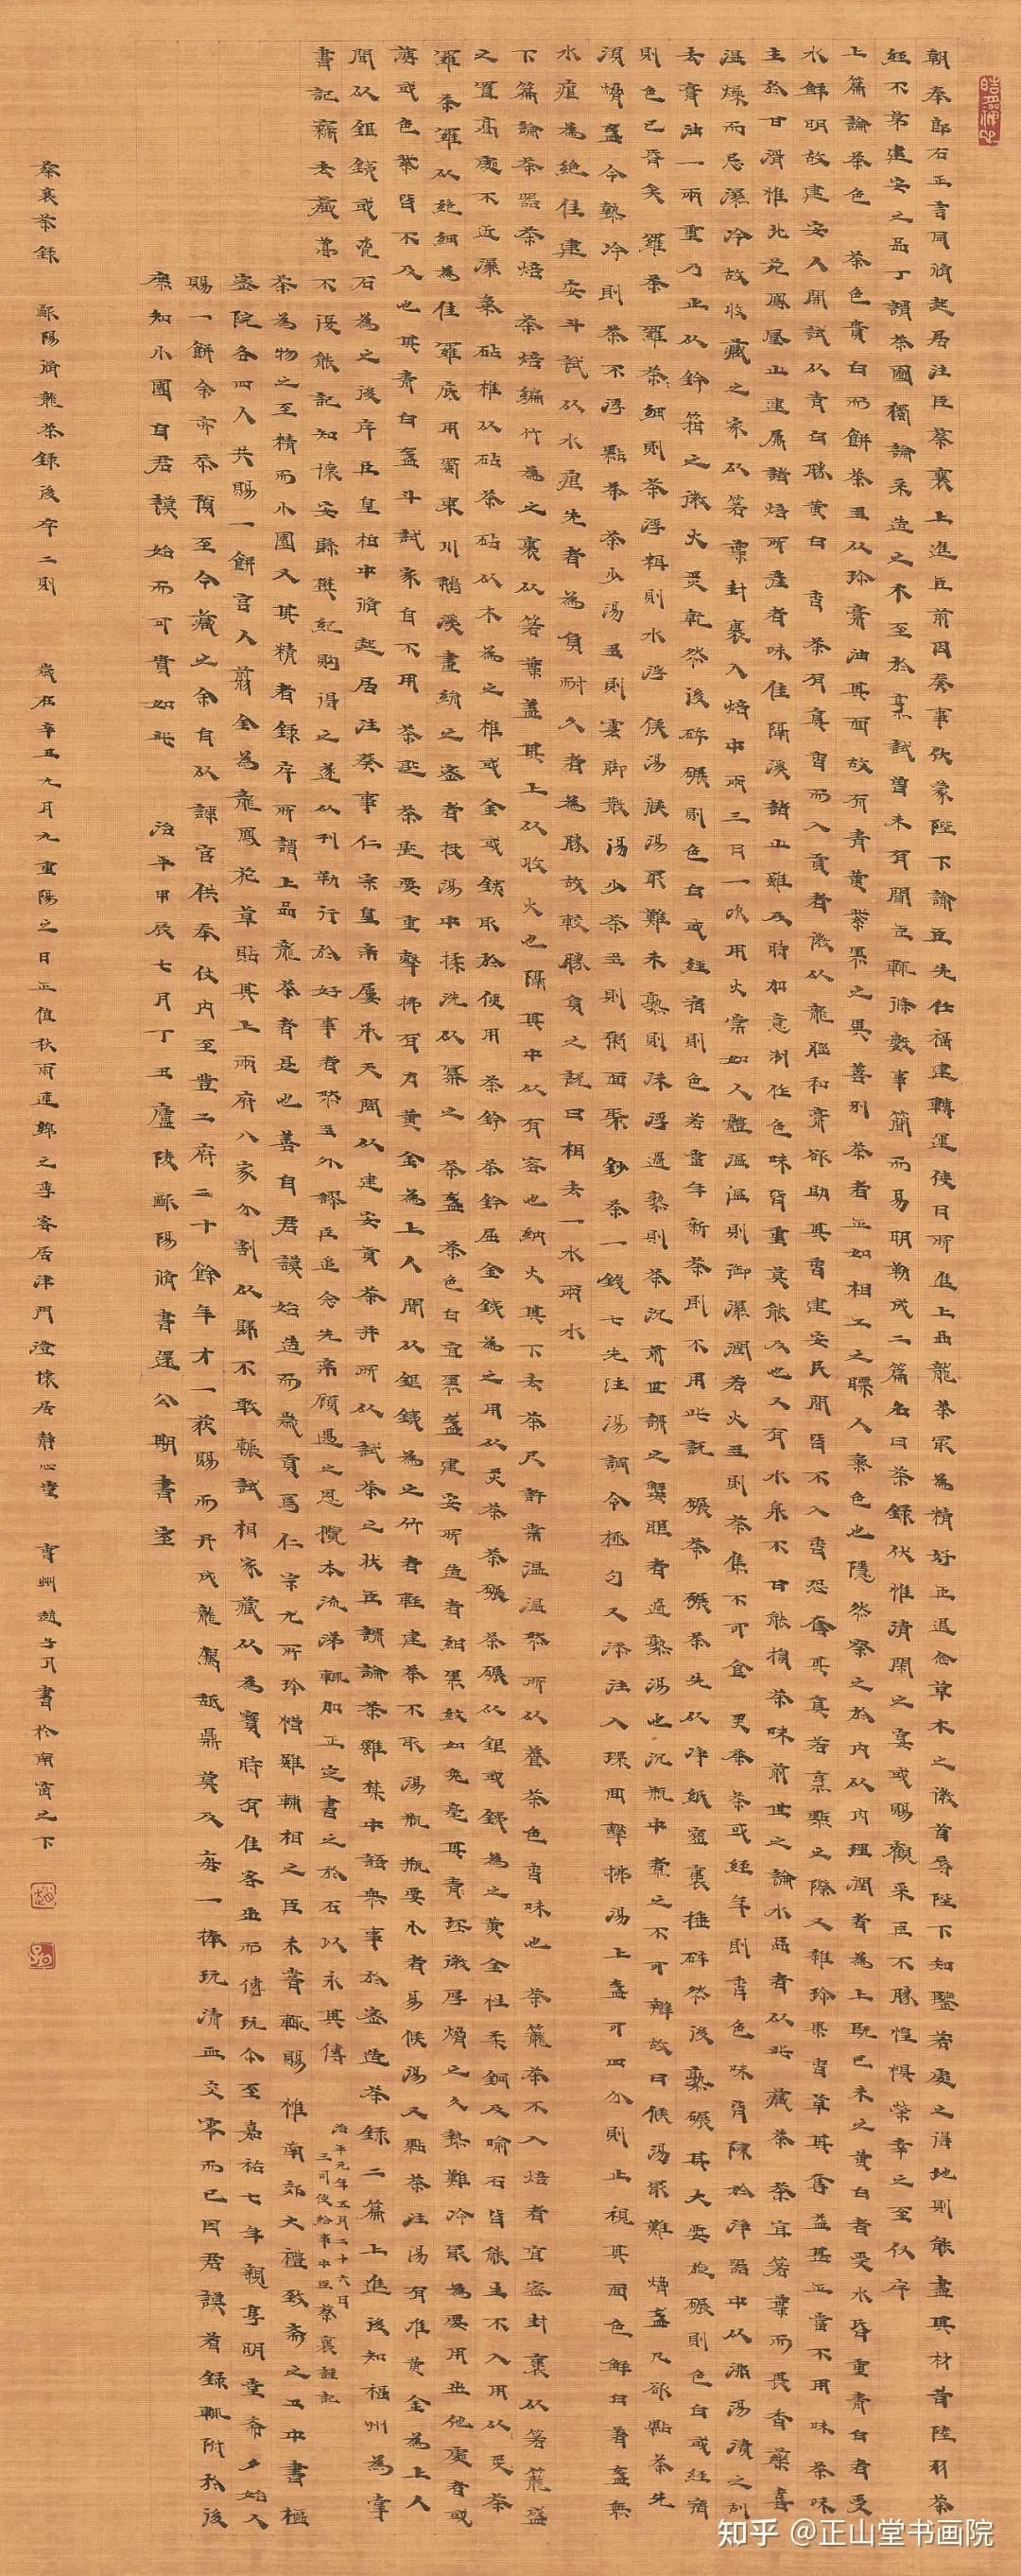 朝奉郎右正言同脩起居注臣蔡襄上進臣前因奏事伏蒙陛下諭臣先任福建轉運使日所進上品龍茶最為精好臣退念草木之微首辱陛下知鑒若處之得地則能盡其材昔陸羽茶
經不第建安之品丁謂茶圖獨論采造之本至於烹試曾未有聞臣輒條數事簡而易明勒成二篇名曰茶錄伏惟清閑之宴或賜觀采臣不勝惶懼榮幸之至仅序
上篇論茶色 茶色貴白而餅茶多以珍膏油其面故有青黃紫黑之異善別茶者正如相工之瞟人氣色也隱然察之於內以肉理潤者為上既已末之黃白者受水昏重青白者受
水鮮明故建安人開試以青白勝黃白 香 茶有真香而入貢者微以龍腦和膏欲助其香建安民間皆不入香恐奪其真若烹點之際又雜珍果香草其奪益甚正當不用 味 茶味
主於甘滑惟北苑鳳凰山連屬諸焙所產者味佳隔溪諸山雖及時加意制作色味皆重莫能及也又有水泉不甘能損茶味前世之論水品者以此 藏茶 茶宜箬葉而畏香藥喜
溫燥而忌濕冷故收藏之家以箬葉封裹入焙中兩三日一次用火常如人體溫溫則御濕潤若火多則茶焦不可食 炙茶 茶或經年則香色味皆陳於淨器中以沸湯漬之刮
去膏油一兩重乃止以鈐箝之微火炙乾然後碎碾則色白或經宿則色若當年新茶則不用此說 碾茶 碾茶先以淨紙密裹捶碎然後熟碾其大要旋碾則色白或經宿
則色已昏矣 羅茶 羅茶細則茶浮粗則水浮 候湯 候湯最難未熟則沫浮過熟則茶沉前世謂之蟹眼者過熟湯也沉瓶中煮之不可辯故曰候湯最難 熁盞 凡欲點茶先
須熁盞令熱冷則茶不浮 點茶 茶少湯多則雲腳散湯少茶多則粥面聚鈔茶一錢七先注湯調令極勻又添注入環回擊拂湯上盞可四分則止視其面色鮮白著盞無
水痕為絕佳建安斗試以水痕先者為負耐久者為勝故較勝負之說曰相去一水兩水
下篇論茶器 茶焙 茶焙編竹為之裹以箬葉蓋其上以收火也隔其中以有容也納火其下去茶尺許常溫溫然所以養茶色香味也 茶籠 茶不入焙者宜密封裹以箬籠盛
之置高處不近濕氣 砧椎 砧椎以砧茶砧以木為之椎或金或鐵取於便用 茶鈐 茶鈐屈金鐵為之用以炙茶 茶碾 茶碾以銀或鐵為之黃金性柔銅及喻石皆能生不入用以炙茶
羅 茶羅以絕細為佳羅底用蜀東川鵝溪畫絹之密者投湯中揉洗以冪之 茶盞 茶色白宜黑盞建安所造者紺黑紋如兔毫其青坯微厚熁之久熱難冷最為要用出他處者或
薄或色紫皆不及也其青白盞斗試家自不用 茶匙 茶匙要重擊拂有力黃金為上人間以銀鐵為之竹者輕建茶不取 湯瓶 瓶要小者易候湯又點茶注湯有准黃金為上人
間以銀鐵或瓷石為之 後序 臣皇祐中脩起居注奏事仁宗皇帝屢承天問以建安貢茶并所以試茶之狀臣謂論茶雖禁中語無事於密造茶錄二篇上進後知福州為掌
書記竊去藏稾不復能記知懷安縣樊紀購得之遂以刊勒行於好事者然多舛謬臣追念先帝顧遇之恩攬本流涕輒加正定書之於石以永其傳 治平元年五月二十六日三司使給事中臣蔡襄謹記
茶為物之至精而小團又其精者錄序所謂上品龍茶者是也善自君謨始造而歲貢焉仁宗尤所珍惜雖輔相之臣未嘗輒賜惟南郊大禮致齋之夕中書樞
密院各四人共賜一餅宮人翦金為龍鳳花草貼其上兩府八家分割以歸不敢輾試相家藏以為寶時有佳客出而傳玩尒至嘉祐七年親享明堂齋夕始人
賜一餅余亦忝預至今藏之余自以諫官供奉仗內至登二府二十餘年才一获賜而丹成龍駕舐鼎莫及每一捧玩清血交零而已因君謨著錄輒附於後
庶知小團自君謨始而可貴如此 治平甲辰七月丁丑廬陵歐陽脩書還公期書室
蔡襄茶錄 歐陽脩龍茶錄後序二則 歲在辛丑九月九重陽之日正值秋雨連綿之季客居津門澄懷居靜心堂 青州趙子月書於南窗之下
知乎 @正山堂书画院